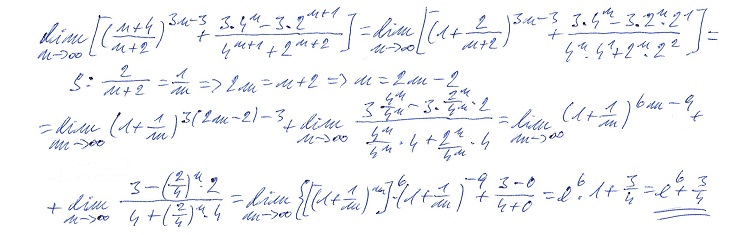 lim n→∞ [((n+4)/(n+2))^(3n-3) + (3·4^n - 3·2^(n+1))/(4^(n+1) + 2^(n+2))] = lim n→∞ [(1 + 2/(n+2))^(3n-3) + (3·4^n - 3·2^n·2^1)/(4^n·4^1 + 2^n·2^2)] =
S: 2/(n+2) = 1/m => 2m = n+2 => n = 2m-2
= lim m→∞ (1 + 1/m)^(3(2m-2)-3) + lim n→∞ (3 4^n/4^n - 3·2^n/4^n·2)/(4^n/4^n·4 + 2^n/4^n·4) = lim m→∞ (1 + 1/m)^(6m-9) +
+ lim n→∞ (3 - (2/4)^n·2)/(4 + (2/4)^n·4) = lim m→∞ {[(1 + 1/m)^m]^6·(1 + 1/m)^(-9) + (3-0)/(4+0) = e^6·1 + 3/4 = e^6 + 3/4